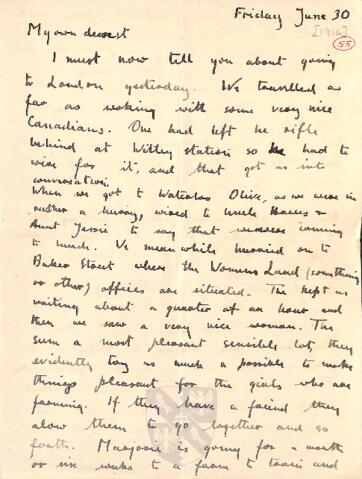 Friday June 30
[1916]
55
My own dearest
I must now tell you about going
to London yesterday. We travelled as
far as woking with some very nice
Canadians. One had left he rifle
behind at Witley station so he had to
wire for it, and that got us into
conversation.
When we got to Waterloo Olive, as we were in
rather a hurry, wired to Uncle &
Aunt Jessie to say that we were coming
to lunch. We meanwhile hurried on to
Baker Street where the Womens Land (something
or other) offices are situated. The kept us
waiting about a quarter of an hour and
then we saw a very nice woman. The
seem a most pleasant sensible lot, they
evidently try as much a possible to make
things pleasant for the girls who are
farming. If they have a friend they
alow them to go together and so
forth. Marjorie is going for a month
or six weeks to a farm to train and